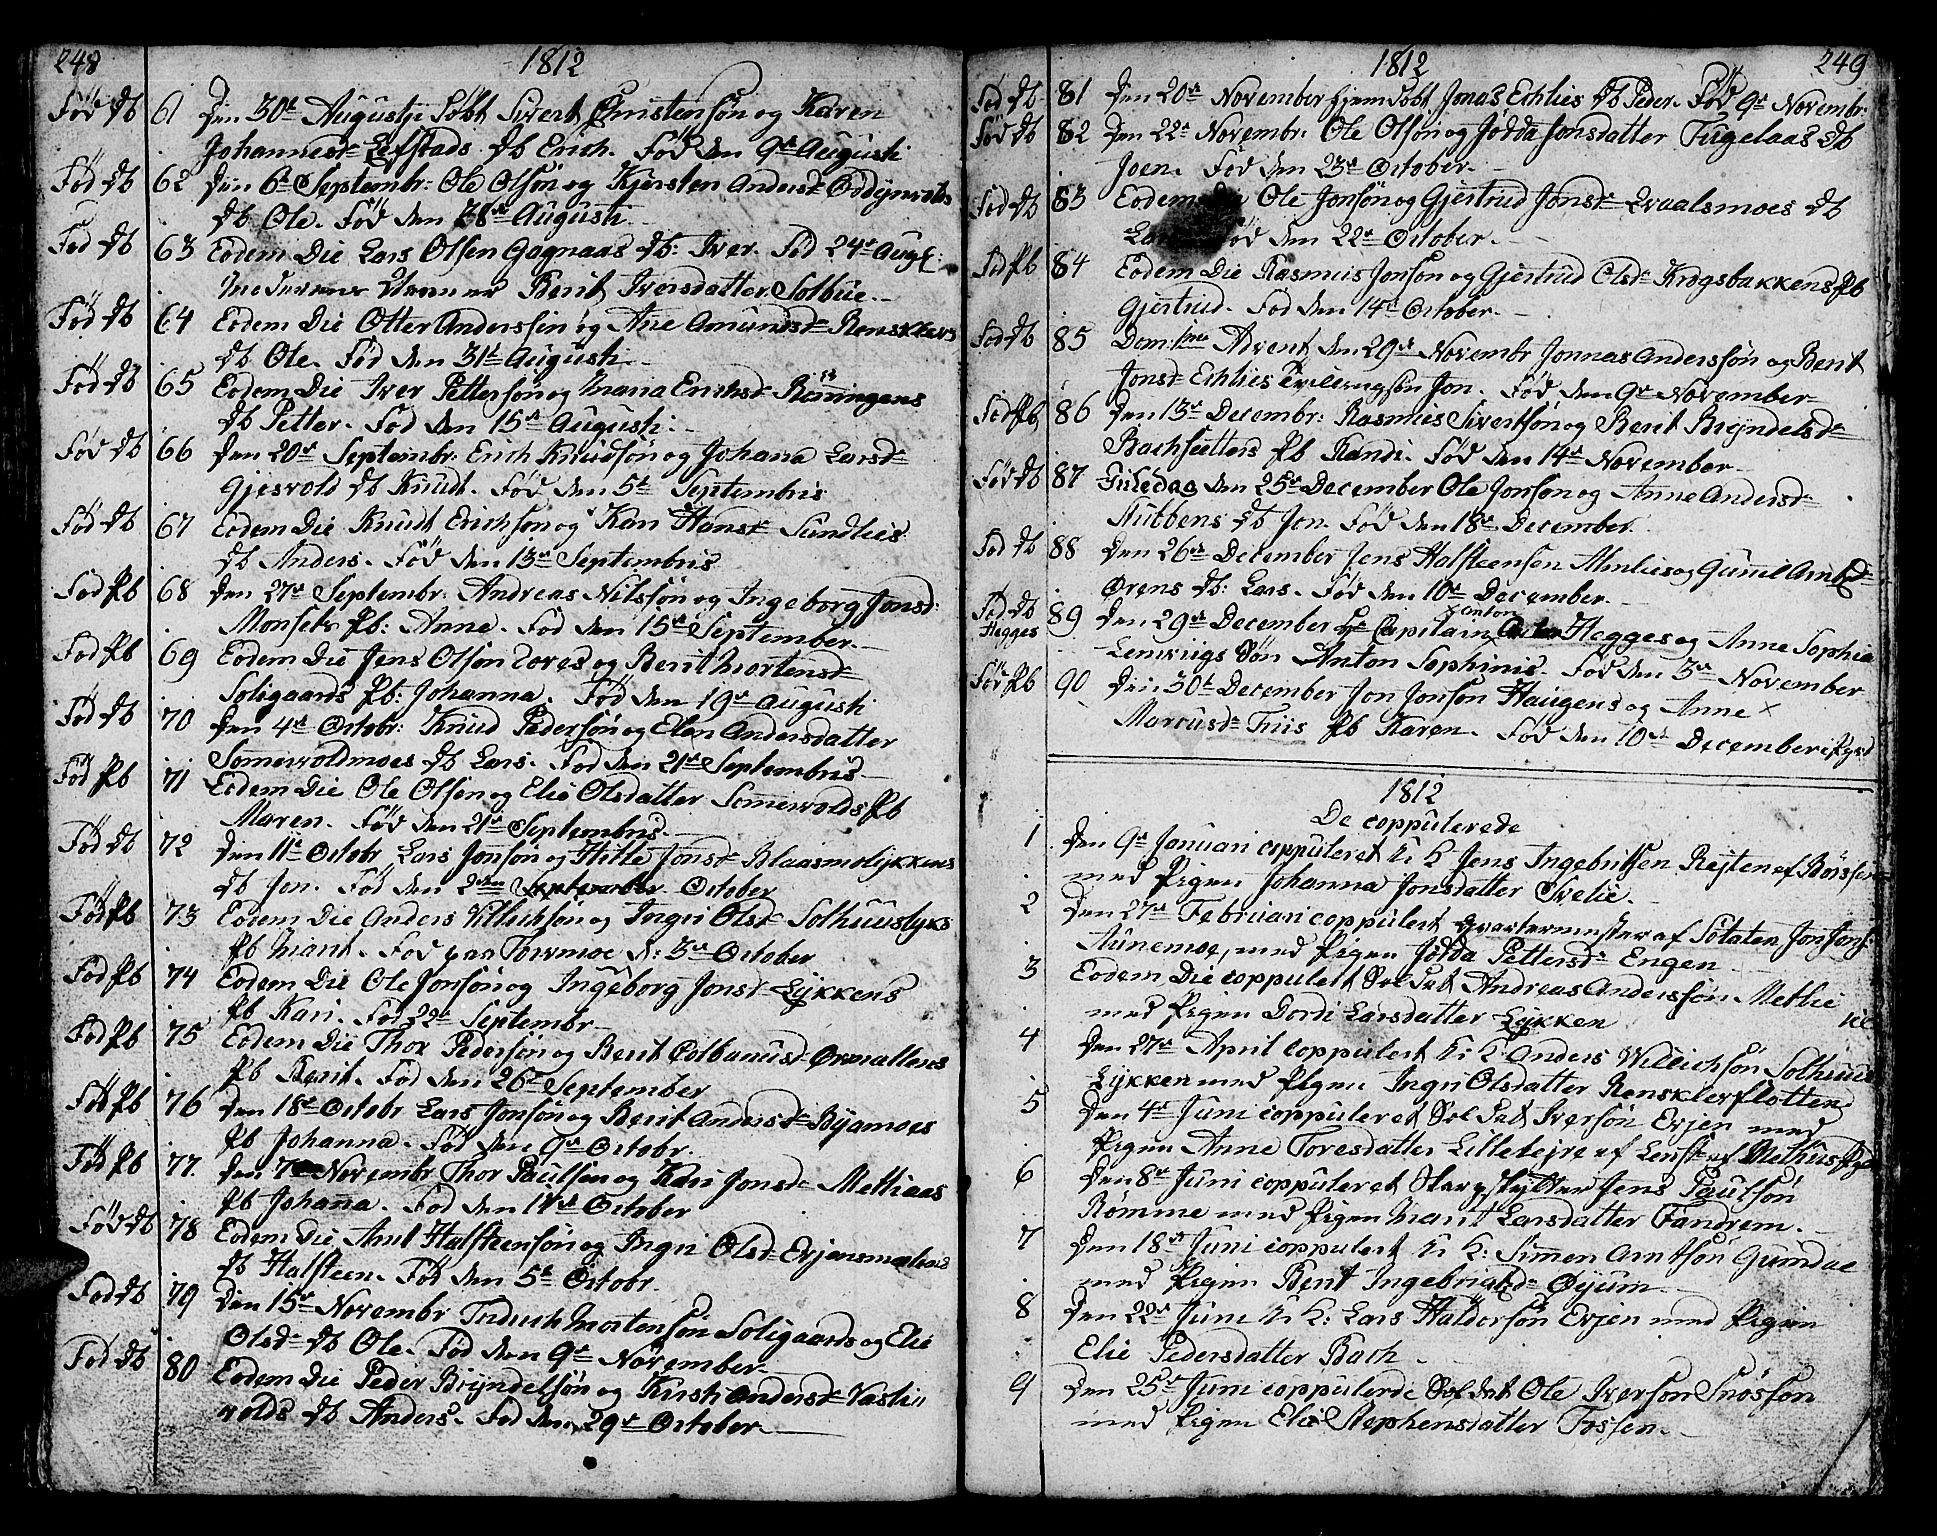 248
1812
Fød Db 61 Den 30te Augusti Døbt Sivert Christensøn og Karen
Johannesdr Lefstads Db Erich. Fød den 9de Augusti
Fød Db 62 Den 6te Septembr: Ole Olsøn og Kjersten Andersdr
Db Ole. Fød den 28de Augusti
Fød Db 63 Eodem Die Lars Olsen Gagnaas Db: Iver. Fød 24de Aug:
Moderens Navn er Berit Iversdatter Solbue.
Fød Db 64 Eodem Die Otter Anderssøn og Ane Amundsdr Rensklers
Db Ole. Fød den 31te Augusti
Fød Db 65 Eodem Die Iver Pettersøn og Maria Erichsdr Röningens
Db Petter. Fød den 15de Augusti.
Fød Db 66 Den 20de Septembr: Erich Knudsøn og Johana Larsdr
Gjesvold Db Knud. Fød den 5te Septembris
Fød Db 67 Eodem Die Knudt Erichsøn og Kari Hansdr Sundlies
Db Anders. Fød den 13de Septembris
Fød Pb 68 Den 27de Septembr: Andreas Nilssøn og Ingeborg Jonsd:
Monset Pb: Anne. Fød den 15de September.
Fød Pb 69 Eodem Die Jens Olsøn Tores og Berit Mortensdr
Soligaards Pb: Johanna. Fød den 19de Augusti
Fød Db 70 Den 4de Octobr: Knud Pedersøn og Elen Andersdatter
Somervoldmoes Db Lars. Fød den 21de Septembris
Fød Pb 71 Eodem Die Ole Olsøn og Elie Olsdatter Somervolds Pb
Maren. Fød den 21de Septembris.
Fød Db 72 Den 11te Octobr Lars Jonsøn og Hille Jonsdr Blaasmolykkens
Db Jon. Fød den 2den September October
Fød Pb 73 Eodem Die Anders Villichsøn og Ingri Olsdr Solhuuslyks
Pb Marit. Fød paa Tovmoe d: 3de October
Fød Pb 74 Eodem Die Ole Jonsøn og Ingeborg Jonsdr Lykkens
Pb Kari. Fød 22de Septembr
Fød Pb 75 Eodem Die Thor Pedersøn og Berit Colbanusdr
Pb Berit. Fød den 26de September
Fød Pb 76 Den 18de Octobr Lars Jonsøn og Berit Andersdr Byamoes
Pb Johanna. Fød den 9de Octobr.
Fød Pb 77. Den 7de Novembr Thor Paulsen og Kari Jonsdr Metliaas
Pb Johana. Fød den 14de October
Fød Db 78 Eodem Die Arnt Halsteensøn og Ingri Olsdr
Db Halsteen. Fød den 5te Octobr.
Fød Db 79 Den 15de Novembr Indrich Mortensøn Soligaards og Elie
Olsdr Db Ole. Fød den 9de November
Fød Db 80 Eodem Die Peder Bryndelsøn og Kirsti Andersdr Vasli
volds Db Anders. Fød den 29de October
1812
249
Fød Db 81 Den 20de November hjemdøbt Jonas Echlies Db Peder. Fød 9de Novembr:
Fød Db 82 Den 22de Novembr: Ole Olsøn og Jødda Jonsdatter Fugelaas Db
Joen. Fød den 23de October.
Fød Db 83 Eodem Die Ole Jonsøn og Gjertrud Jonsdr Qvaalsmoes Db
Lars. Fød den 22de October.
Fød Pb 84 Eodem Die Rasmus Jonsøn og Gjertrud Olsdr Krogsbakkens Pb
Gjertrud. Fød den 14de October.
Fød Db 85 Dom: 1ma Advent den 29de Novembr Jonnas Anderssøn og Berit
Jonsdr Echlies Tvillingsøn Jon. Fød den 9de November
Fød Pb 86 Den 13de Decembr: Rasmus Sivertsøn og Berit Bryndelsdr
Bachsetters Pb Randi. Fød den 14de November
Fød Db 87 Juledag den 25de December Ole Jonsøn og Anne Andersdr
Hutbens Db Jon. Fød den 18de December.
Fød Db 88 Den 26de December Jens Halsteensen Almlies og Gunnil Arntsdr
Ørens Db: Lars. Fød den 10de December.
Fød Db Hegges 89 Den 29de December Capitain Anton Hegges og Anne Sophia
Lemvigs Søn Anton Sophinis. Fød den 3de November
Fød Pb 90 Den 30te December Jon Jonsøn Haugens og Anne
Marcusdr Friis Pb Karen. Fød den 10de December
1812
De coppulerede
1 Den 9de Januari coppuleret U K Jens Ingebritsen Rejten af Børssen
med Pigen Johanna Jonsdatter Tvelie.
2 Den 27de Februari coppulert Qvartermester af Sotaten Jon Jons:
Aunemoe, med Pigen Jødda Pettersdr Engen
3 Eodem Die coppulert Soldat Andreas Anderssøn Metlie
med Pigen Dordi Larsdatter Lykken
4 Den 27de April coppulert U: K Anders Willichsøn Solhuus
Lykken med Pigen Ingri Olsdatter Rensklerflotten
5 Den 4de Juni coppuleret Soldat Iversøn Evjen med
Pigen Anne Toresdatter Lillebejre af
6 Den 8de Juni coppuleret Skarpskytter Jens Paulsøn
Rømme med Pigen Marit Larsdatter Fandrem.
7 Den 18de Juni coppulert U K: Simen Arntsøn Grimdae
med Pigen Berit Ingebrigtsdr Øyum
8 Den 22de Juni U K: Lars Haldorsøn Evjen med Pigen
Elie Pedersdatter Bach
9 Den 25de Juni coppulerde Soldat Ole Iversøn Snøsson
med Pigen Elie Stephensdatter Fossen.